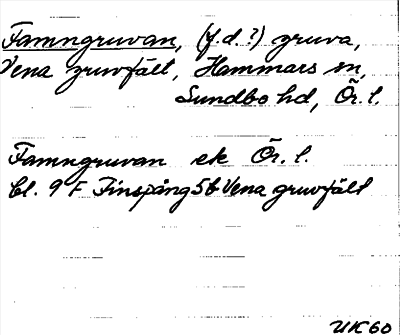 Famngruvan, (f.d.?) gruva,
Vena gruvfält, Hammars sn,
Sundbo hd, Ör. l.
Famngruvan ek Ör. l.
bl. 9 F Finspång 5b Vena gruvfält
UK60